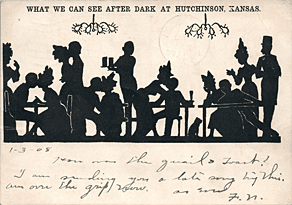 WHAT WE CAN SEE AFTER DARK AT HUTCHINSON, KANSAS.
1-3-08
How was the quail & toast?
I am sending you a late song by this.
am over the grip now. as ever
F. N.